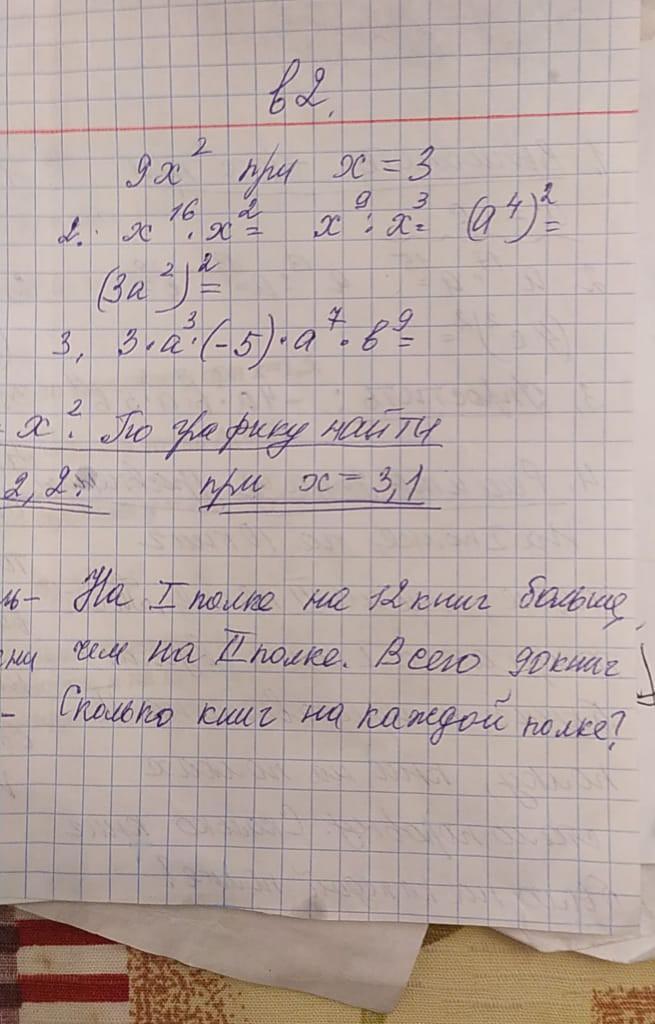 в2.
9x² при x = 3
2. x¹⁶ · x² = x⁹ : x³ = (a⁴)² =
(3a²)² =
3, 3 · a³ · (-5) · a⁷ · в⁹ =
x². По графику найти
2,2. при x = 3,1
ль- На I полке на 12 книг больше,
чем на II полке. Всего 90 книг
- Сколько книг на каждой полке?